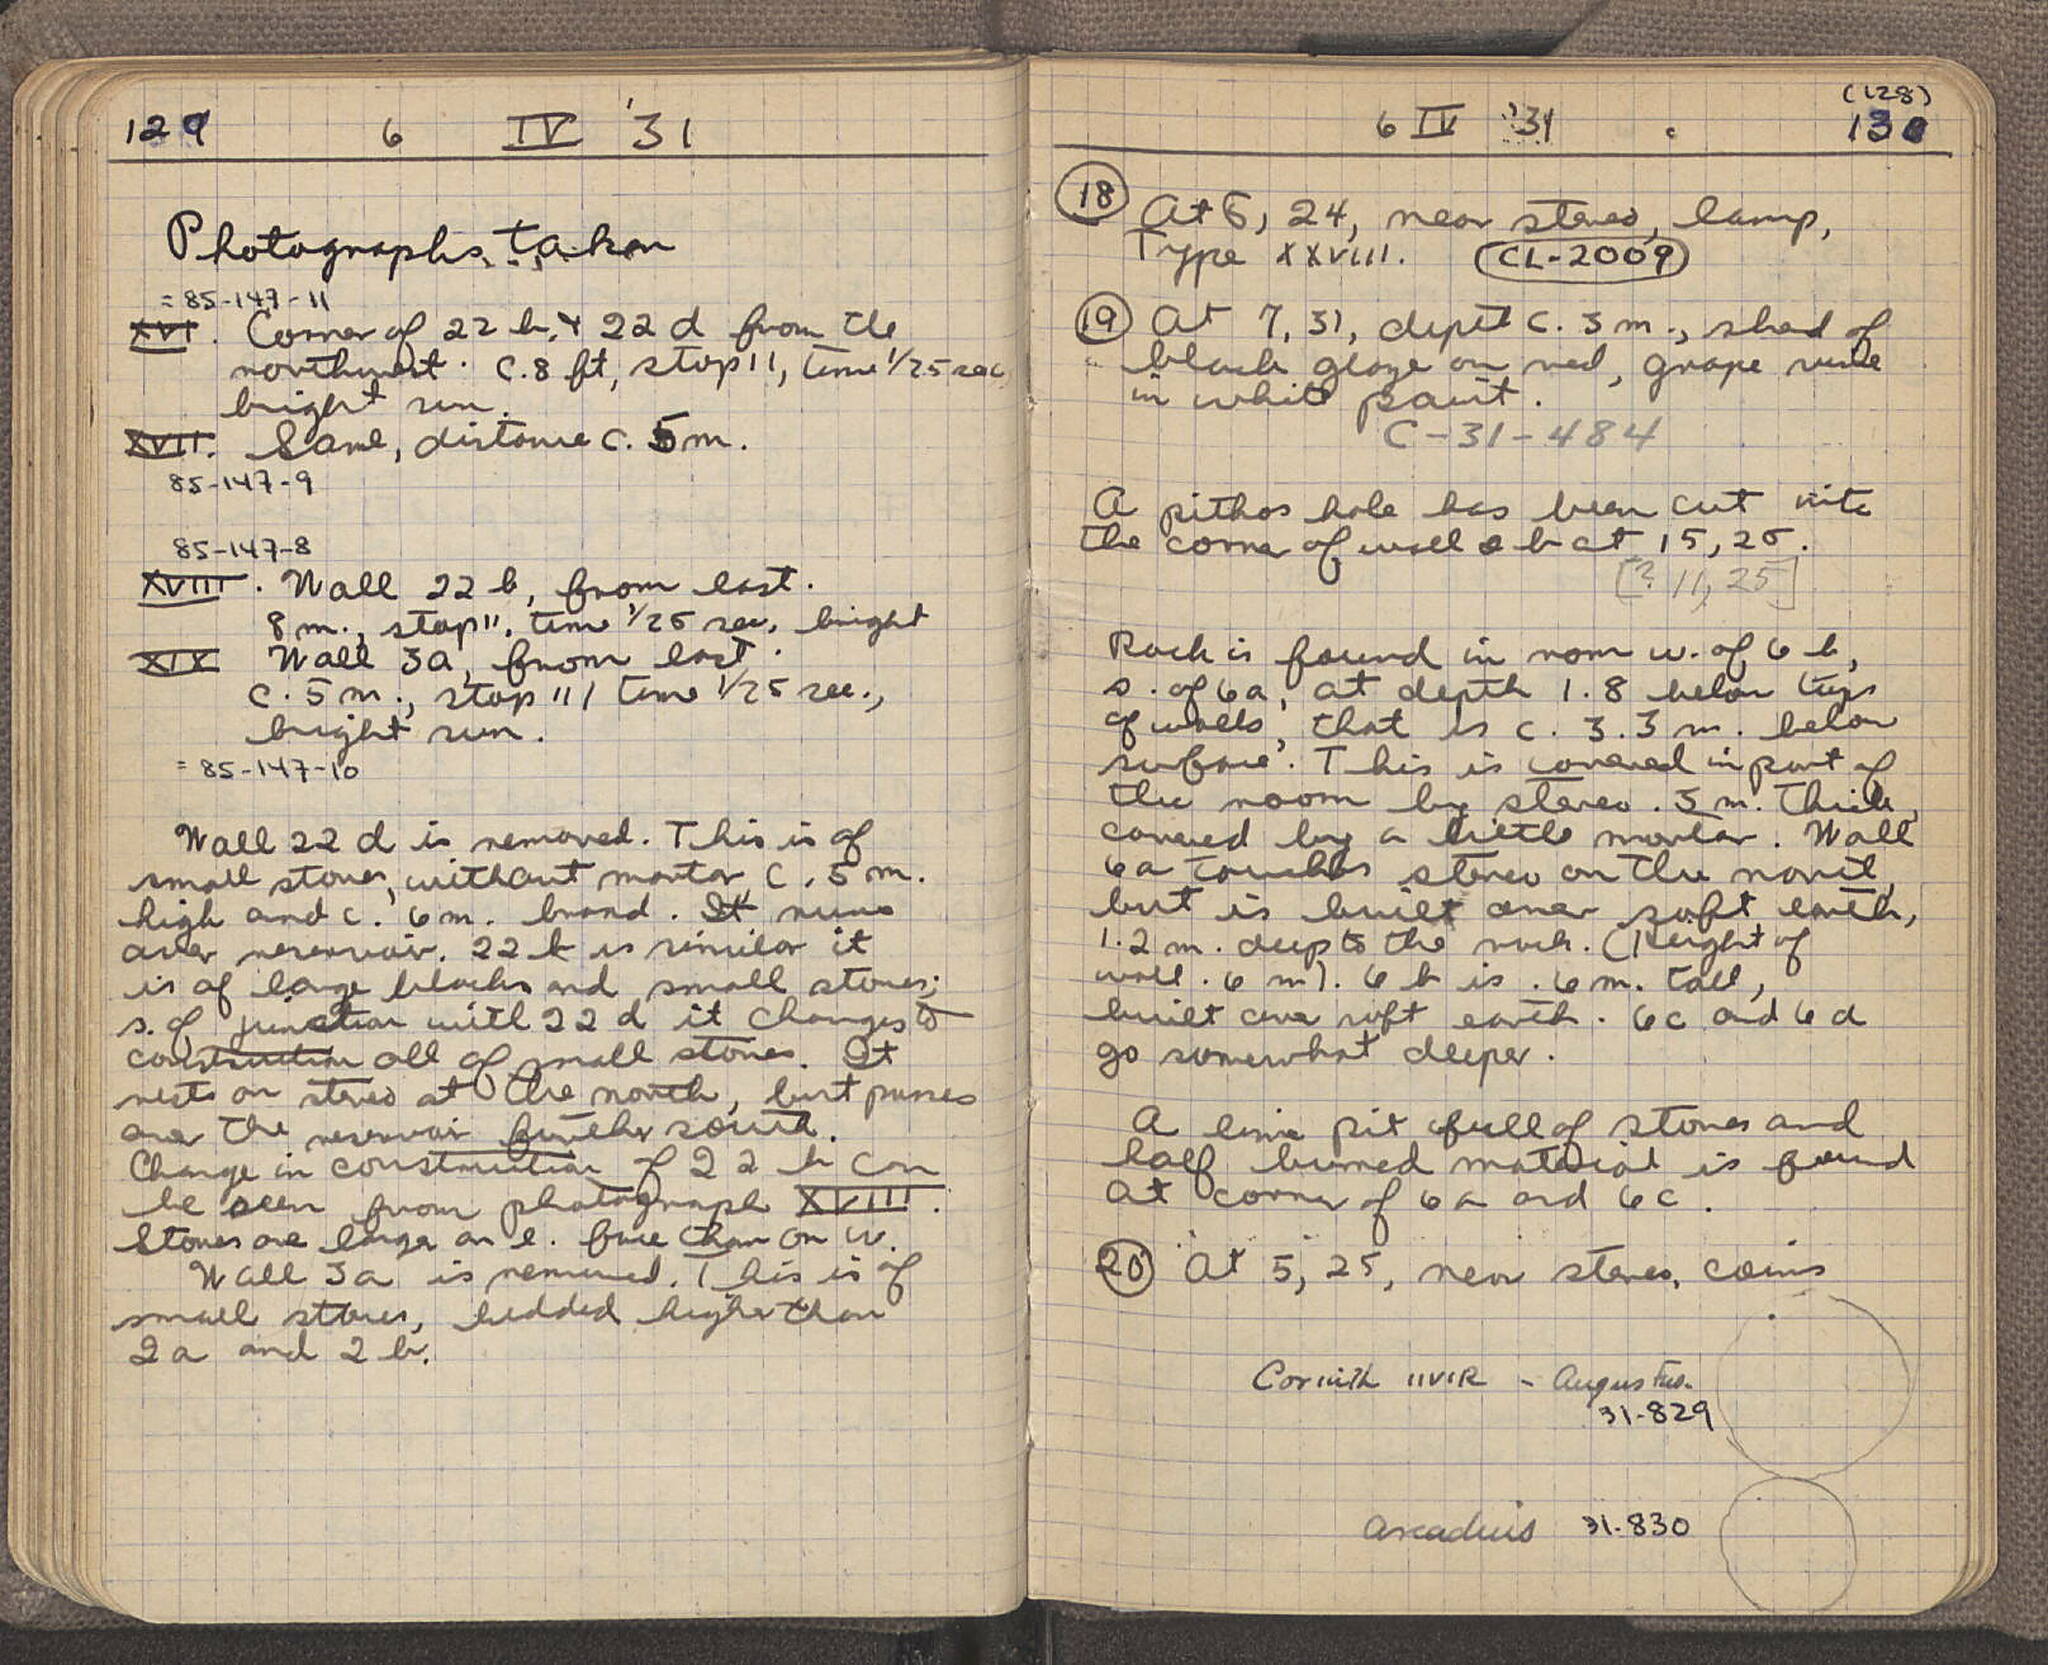 129 6 IV '31
Photographs taken
= 85-147-11
XVI. Corner of 22 b & 22 d from the
northwest. C. 8 ft, stop 11, time 1/25 sec
bright sun.
XVII. Same, distance c. 5 m.
85-147-9
85-147-8
XVIII. Wall 22 b, from east.
8 m., stop 11, time 1/25 sec, bright
XIX Wall 3a, from east.
c. 5 m., stop 11, time 1/25 sec.,
bright sun.
= 85-147-10
Wall 22 d is removed. This is of
small stones, without mortar, c. .5 m.
high and c. .6 m. broad. It runs
over reservoir. 22 b is similar it
is of large blocks and small stones;
s. of junction with 22 d it changes to
construction all of small stones. It
rests on stereo at the north, but passes
over the reservoir further south.
Change in construction of 22 b can
be seen from photograph XVIII.
Stones are larger on e. face than on w.
Wall 3a is removed. This is of
small stones, bedded higher than
2a and 2 b.
(128)
6 IV '31 130
18 At 5, 24, near stereo, lamp,
Type XXVIII. CL-2009
19 At 7, 31, depth c. 3 m., shed of
black glaze on red, grape vine
in white paint.
C-31-484
A pithos hole has been cut into
the corner of wall b at 15, 25.
[? 11, 25]
Rock is found in room w. of 6 b,
s. of 6a, at depth 1.8 below tops
of walls, that is c. 3.3 m. below
surface. This is covered in part of
the room by stereo .3 m. thick,
covered by a little mortar. Wall
6a touches stereo on the north,
but is built over soft earth,
1.2 m. deep to the rock. (Height of
wall .6 m). 6 b is .6 m. tall,
built over soft earth. 6c and 6d
go somewhat deeper.
A lime pit full of stones and
half burned material is found
at corner of 6a and 6c.
20 At 5, 25, near stereo, coins
Corinth IIVIR - Augustus.
31-829
Arcadius 31-830